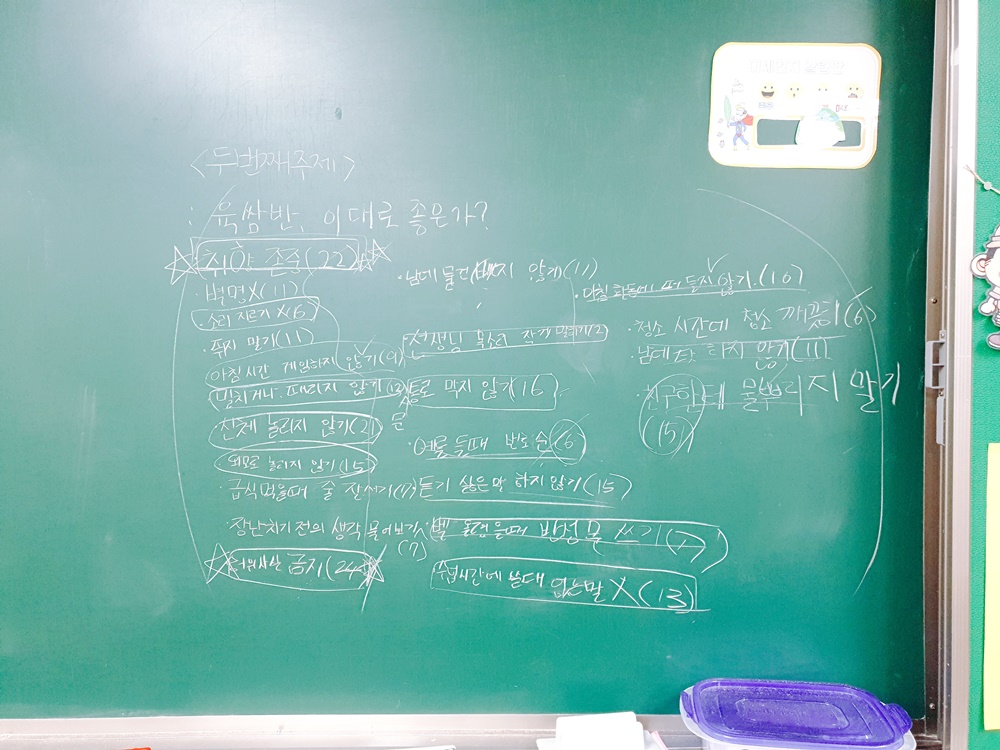 <두번째주제>
: 육쌈반, 이대로 좋은가?
취향 존중(22)
· 별명X(11)
· 소리 지르기 X(6)
· 뛰지 말기(11)
아침 시간 게임하지 않기(9)
밀치거나 때리지 않기
신체 놀리지 않기(21)
· 외모로 놀리지 않기(15)
· 급식먹을때 줄 잘서기(7)
· 장난치기 전의 생각 물어보기
(7)
금지(24)
· 남에 물건 지 않기(11)
선생님 목소리
통로 막지 않기(16)
문
· 예를 들때 번호 순(6)
듣기 싫은 말 하지 않기(15)
반성문 쓰기(7)
수업시간에 쓸대 없는말 X(13)
· 아침 활동에 떠들지 않기.(10)
· 청소 시간데 청소 깨끗히(6)
· 남에 탓 하지 않기(11)
· 친구한테 물뿌리지 말기
(15)